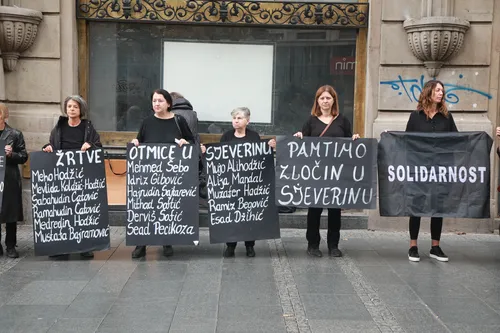 ŽRTVE
Meho Hodžić
Mevlida Koldžić Hodžić
Sabahudin Ćatović
Ramahudin Ćatović
Medredin Hodžić
Mustafa Bajramović
OTMICE U
Mehmed Šebo
Idriz Gibović
Hajrudin Sajtarević
Mithad Softić
Derviš Softić
Sead Pecikoza
SJEVERINU
Mujo Alihodžić
Alija Mandal
Muzafer Hadžić
Ramiz Begović
Esad Džihić
PAMTIMO
ZLOČIN U
SJEVERINU
SOLIDARNOST
nim